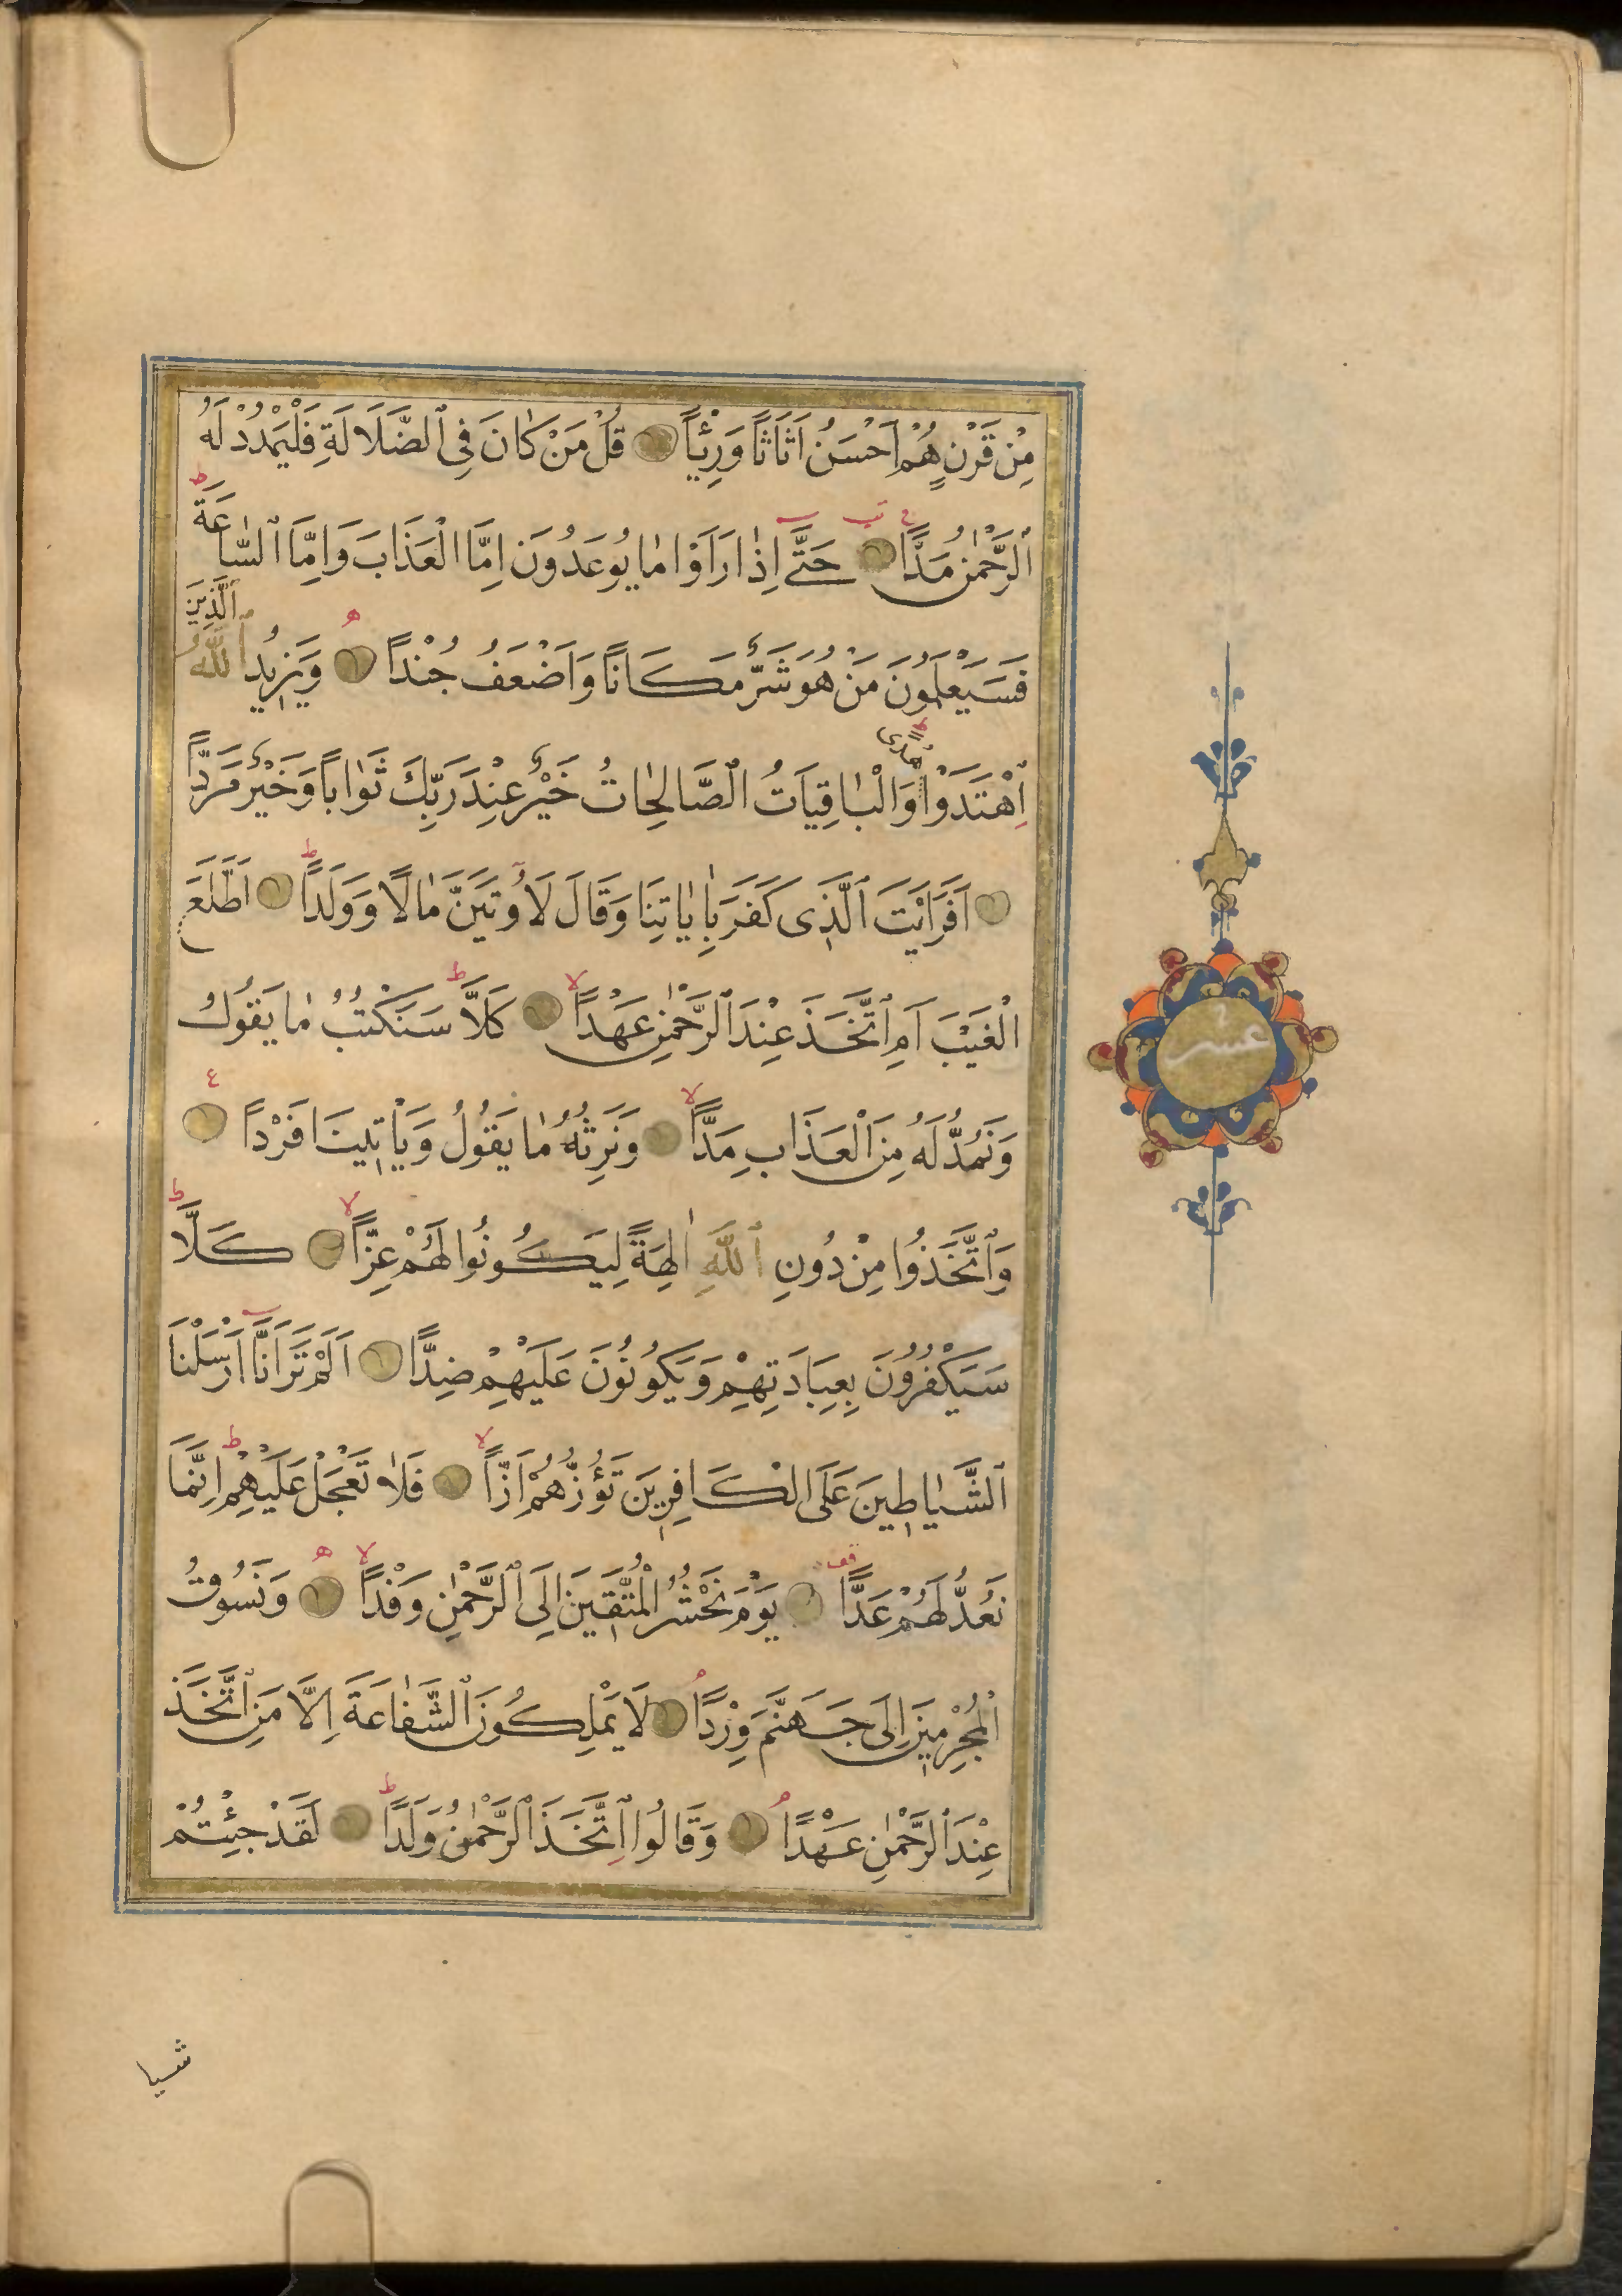 مِنْ قَرْنٍ هُمْ اَحْسَنُ اَثَاثًا وَرِئْيًا قُلْ مَنْ كَانَ فِى ٱلضَّلَالَةِ فَلْيَمْدُدْ لَهُ
ٱلرَّحْمٰنُ مَدًّا حَتّٰٓى اِذَا رَاَوْا مَا يُوعَدُونَ اِمَّا الْعَذَابَ وَاِمَّا ٱلسَّاعَةَ ط
فَسَيَعْلَمُونَ مَنْ هُوَ شَرٌّ مَكَانًا وَاَضْعَفُ جُنْدًا ه وَيَزِيدُ ٱللّٰهُ ٱلَّذِينَ
اِهْتَدَوْا هُدًى ط وَالْبَاقِيَاتُ ٱلصَّالِحَاتُ خَيْرٌ عِنْدَ رَبِّكَ ثَوَابًا وَخَيْرٌ مَرَدًّا
اَفَرَاَيْتَ ٱلَّذِى كَفَرَ بِاٰيَاتِنَا وَقَالَ لَاُوتَيَنَّ مَالًا وَوَلَدًا ط اَطَّلَعَ
الْغَيْبَ اَمِ ٱتَّخَذَ عِنْدَ ٱلرَّحْمٰنِ عَهْدًا لا كَلَّا ط سَنَكْتُبُ مَا يَقُولُ
وَنَمُدُّ لَهُ مِنَ الْعَذَابِ مَدًّا لا وَنَرِثُهُ مَا يَقُولُ وَيَأْتِينَا فَرْدًا ع
وَٱتَّخَذُوا مِنْ دُونِ ٱللّٰهِ اٰلِهَةً لِيَكُونُوا لَهُمْ عِزًّا لا كَلَّا ط
سَيَكْفُرُونَ بِعِبَادَتِهِمْ وَيَكُونُونَ عَلَيْهِمْ ضِدًّا اَلَمْ تَرَ اَنَّٓا اَرْسَلْنَا
ٱلشَّيَاطِينَ عَلَى الْكَافِرِينَ تَؤُزُّهُمْ اَزًّا لا فَلَا تَعْجَلْ عَلَيْهِمْ ط اِنَّمَا
نَعُدُّ لَهُمْ عَدًّا قف يَوْمَ نَحْشُرُ الْمُتَّقِينَ اِلَى ٱلرَّحْمٰنِ وَفْدًا لا ه وَنَسُوقُ
الْمُجْرِمِينَ اِلَى جَهَنَّمَ وِرْدًا لَا يَمْلِكُونَ ٱلشَّفَاعَةَ اِلَّا مَنِ ٱتَّخَذَ
عِنْدَ ٱلرَّحْمٰنِ عَهْدًا وَقَالُوا ٱتَّخَذَ ٱلرَّحْمٰنُ وَلَدًا ط لَقَدْ جِئْتُمْ
عشر
شيا